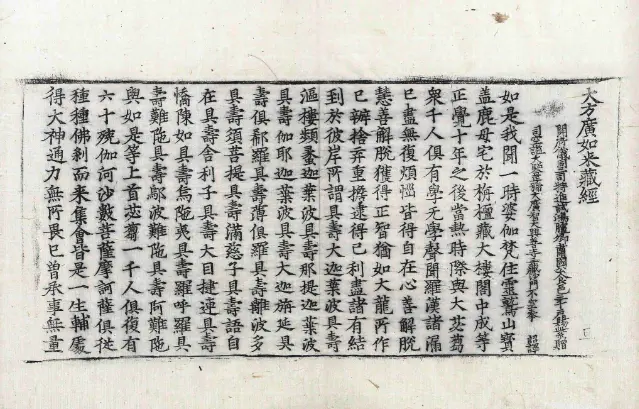 大方廣如来藏經
開府儀同三司特進試鴻臚卿肅國公食邑三千戶賜紫贈
司空謚大鑒正號大廣智大興善寺三藏沙門不空奉　詔譯
如是我聞一時婆伽梵住靈鷲山寶
盖鹿母宅於栴檀藏大樓閣中成等
正覺十年之後當熱時際與大苾蒭
衆千人俱有學无學聲聞羅漢諸漏
已盡無復煩惱皆得自在心善解脫
慧善解脫獲得正智猶如大龍所作
已辦捨弃重擔逮得已利盡諸有結
到於彼岸所謂具壽大迦葉波具壽
漚樓頻蠡迦葉波具壽那提迦葉波
具壽伽耶迦葉波具壽大迦旃延具
壽俱郗羅具壽薄俱羅具壽離波多
具壽須菩提具壽滿慈子具壽語自
在具壽舍利子具壽大目揵連具壽
憍陳如具壽烏陁夷具壽羅呼羅具
壽難陁具壽鄔波難陁具壽阿難陁
與如是等上首苾蒭一千人俱復有
六十殑伽河沙數菩薩摩訶薩俱從
種種佛剎而来集會皆是一生補處
得大神通力無所畏已曾承事無量